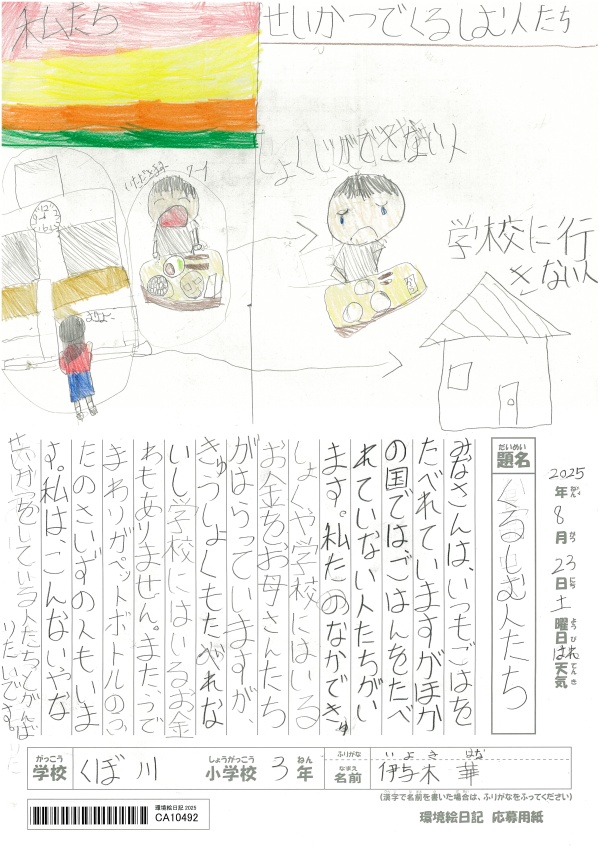 私たち
せいかつでくるしむ人たち
しょくじができない人
いただきまーす
ワーイ
学校に行
きない人
だいめい
題名
くるしむ人たち
2025年8月23日土曜日はれ天気
ねん
がつ
にち
ようび
てんき
みなさんは、いつもごはんを
たべれていますがほか
の国ではごはんをたべ
れていない人たちがい
ます。私たのなかできゅ
しょくや学校にはいる
お金をお母さんたち
がはらっていますが、
きゅうしょくもたべれな
いし学校にはいるお金
わもありません。またって
まわりがペットボトルのふ
たのさいずの人もいま
す。私は、こんないやな
せいかつをしている人たちとがんば
りたいです。
がっこう
学校
くぼ川
しょうがっこう
小学校
3
ねん
年
ふりがな
いよき はな
なまえ
名前
伊与木 華
(漢字で名前を書いた場合は、ふりがなをふってください)
環境絵日記 2025
CA10492
環境絵日記 応募用紙